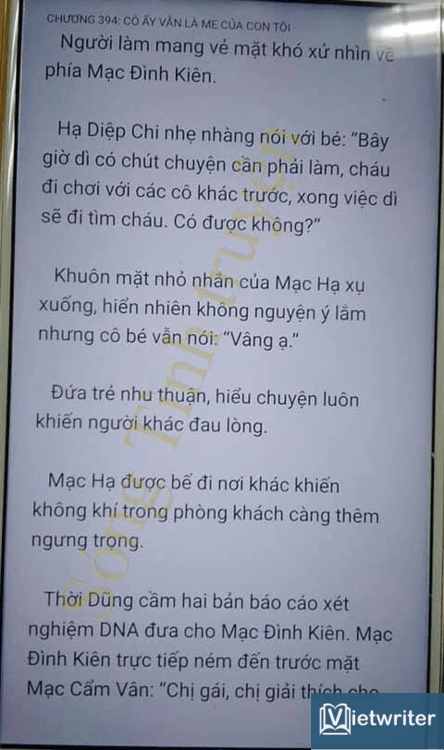 CHƯƠNG 394: CÔ ẤY VẪN LÀ MẸ CỦA CON TÔI
Người làm mang vẻ mặt khó xử nhìn về
phía Mạc Đình Kiên.
Hạ Diệp Chi nhẹ nhàng nói với bé: “Bây
giờ dì có chút chuyện cần phải làm, cháu
đi chơi với các cô khác trước, xong việc dì
sẽ đi tìm cháu. Có được không?”
Khuôn mặt nhỏ nhắn của Mạc Hạ xụ
xuống, hiển nhiên không nguyện ý lắm
nhưng cô bé vẫn nói: “Vâng ạ.”
Đứa trẻ nhu thuận, hiểu chuyện luôn
khiến người khác đau lòng.
Mạc Hạ được bế đi nơi khác khiến
không khí trong phòng khách càng thêm
ngưng trọng.
Thời Dũng cầm hai bản báo cáo xét
nghiệm DNA đưa cho Mạc Đình Kiên. Mạc
Đình Kiên trực tiếp ném đến trước mặt
Mạc Cẩm Vân: “Chị gái, chị giải thích cho
Vietwriter